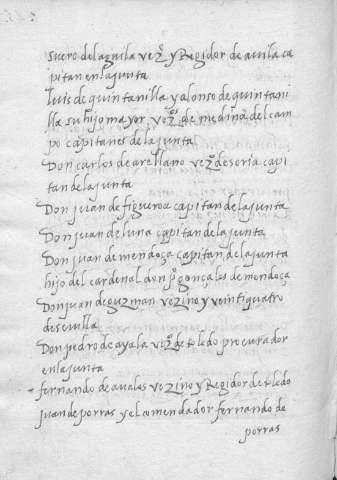 suero del aguila vezº y Regidor de auila ca
pitan en la junta
luis de quintanilla y alonso de quintani
lla su hijo mayor vezºs de medina del cam
po capitanes de la junta
Don carlos de arellano vezº de soria capi
tan de la junta
Don juan de figueroa capitan de la junta
Don juan de luna capitan de la junta
Don juan de mendoça capitan de la junta
hijo del cardenal don pº gonçales de mendoça
Don juan de guzman vezino y veintiquatro
de seuilla
Don pedro de ayala vezº de toledo procurador
en la junta
fernando de aualos vezino y Regidor de toledo
juan de porras y el comendador fernando de
porras